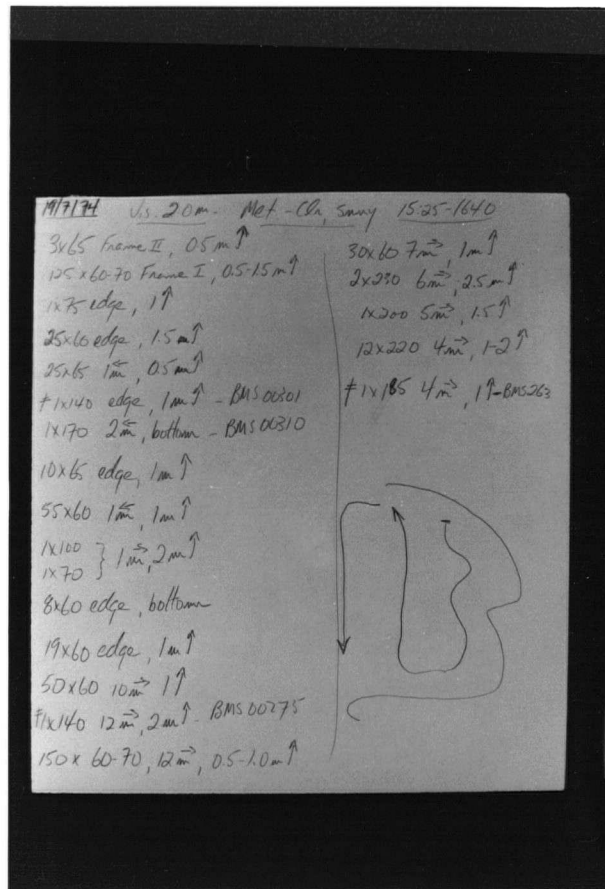 19/7/74 Vis. 20m - Met - Clr, Sunny 15:25-1640
3x65 Frame II, 0.5m↑
125x60-70 Frame I, 0.5-1.5m↑
1x75 edge, 1↑
25x60 edge, 1.5m↑
25x65 1m←, 0.5m↑
#1x140 edge, 1m↑ - BMS00301
1x170 2m←, bottom - BMS00310
10x65 edge, 1m↑
55x60 1m←, 1m↑
1x100
1x70 } 1m→, 2m↑
8x60 edge, bottom
19x60 edge, 1m↑
50x60 10m→ 1↑
#1x140 12m→, 2m↑ - BMS00275
150x60-70, 12m→, 0.5-1.0m↑
30x60 7m→, 1m↑
2x230 6m→, 2.5m↑
1x200 5m→, 1.5↑
12x220 4m→, 1-2↑
#1x185 4m→, 1↑-BMS263